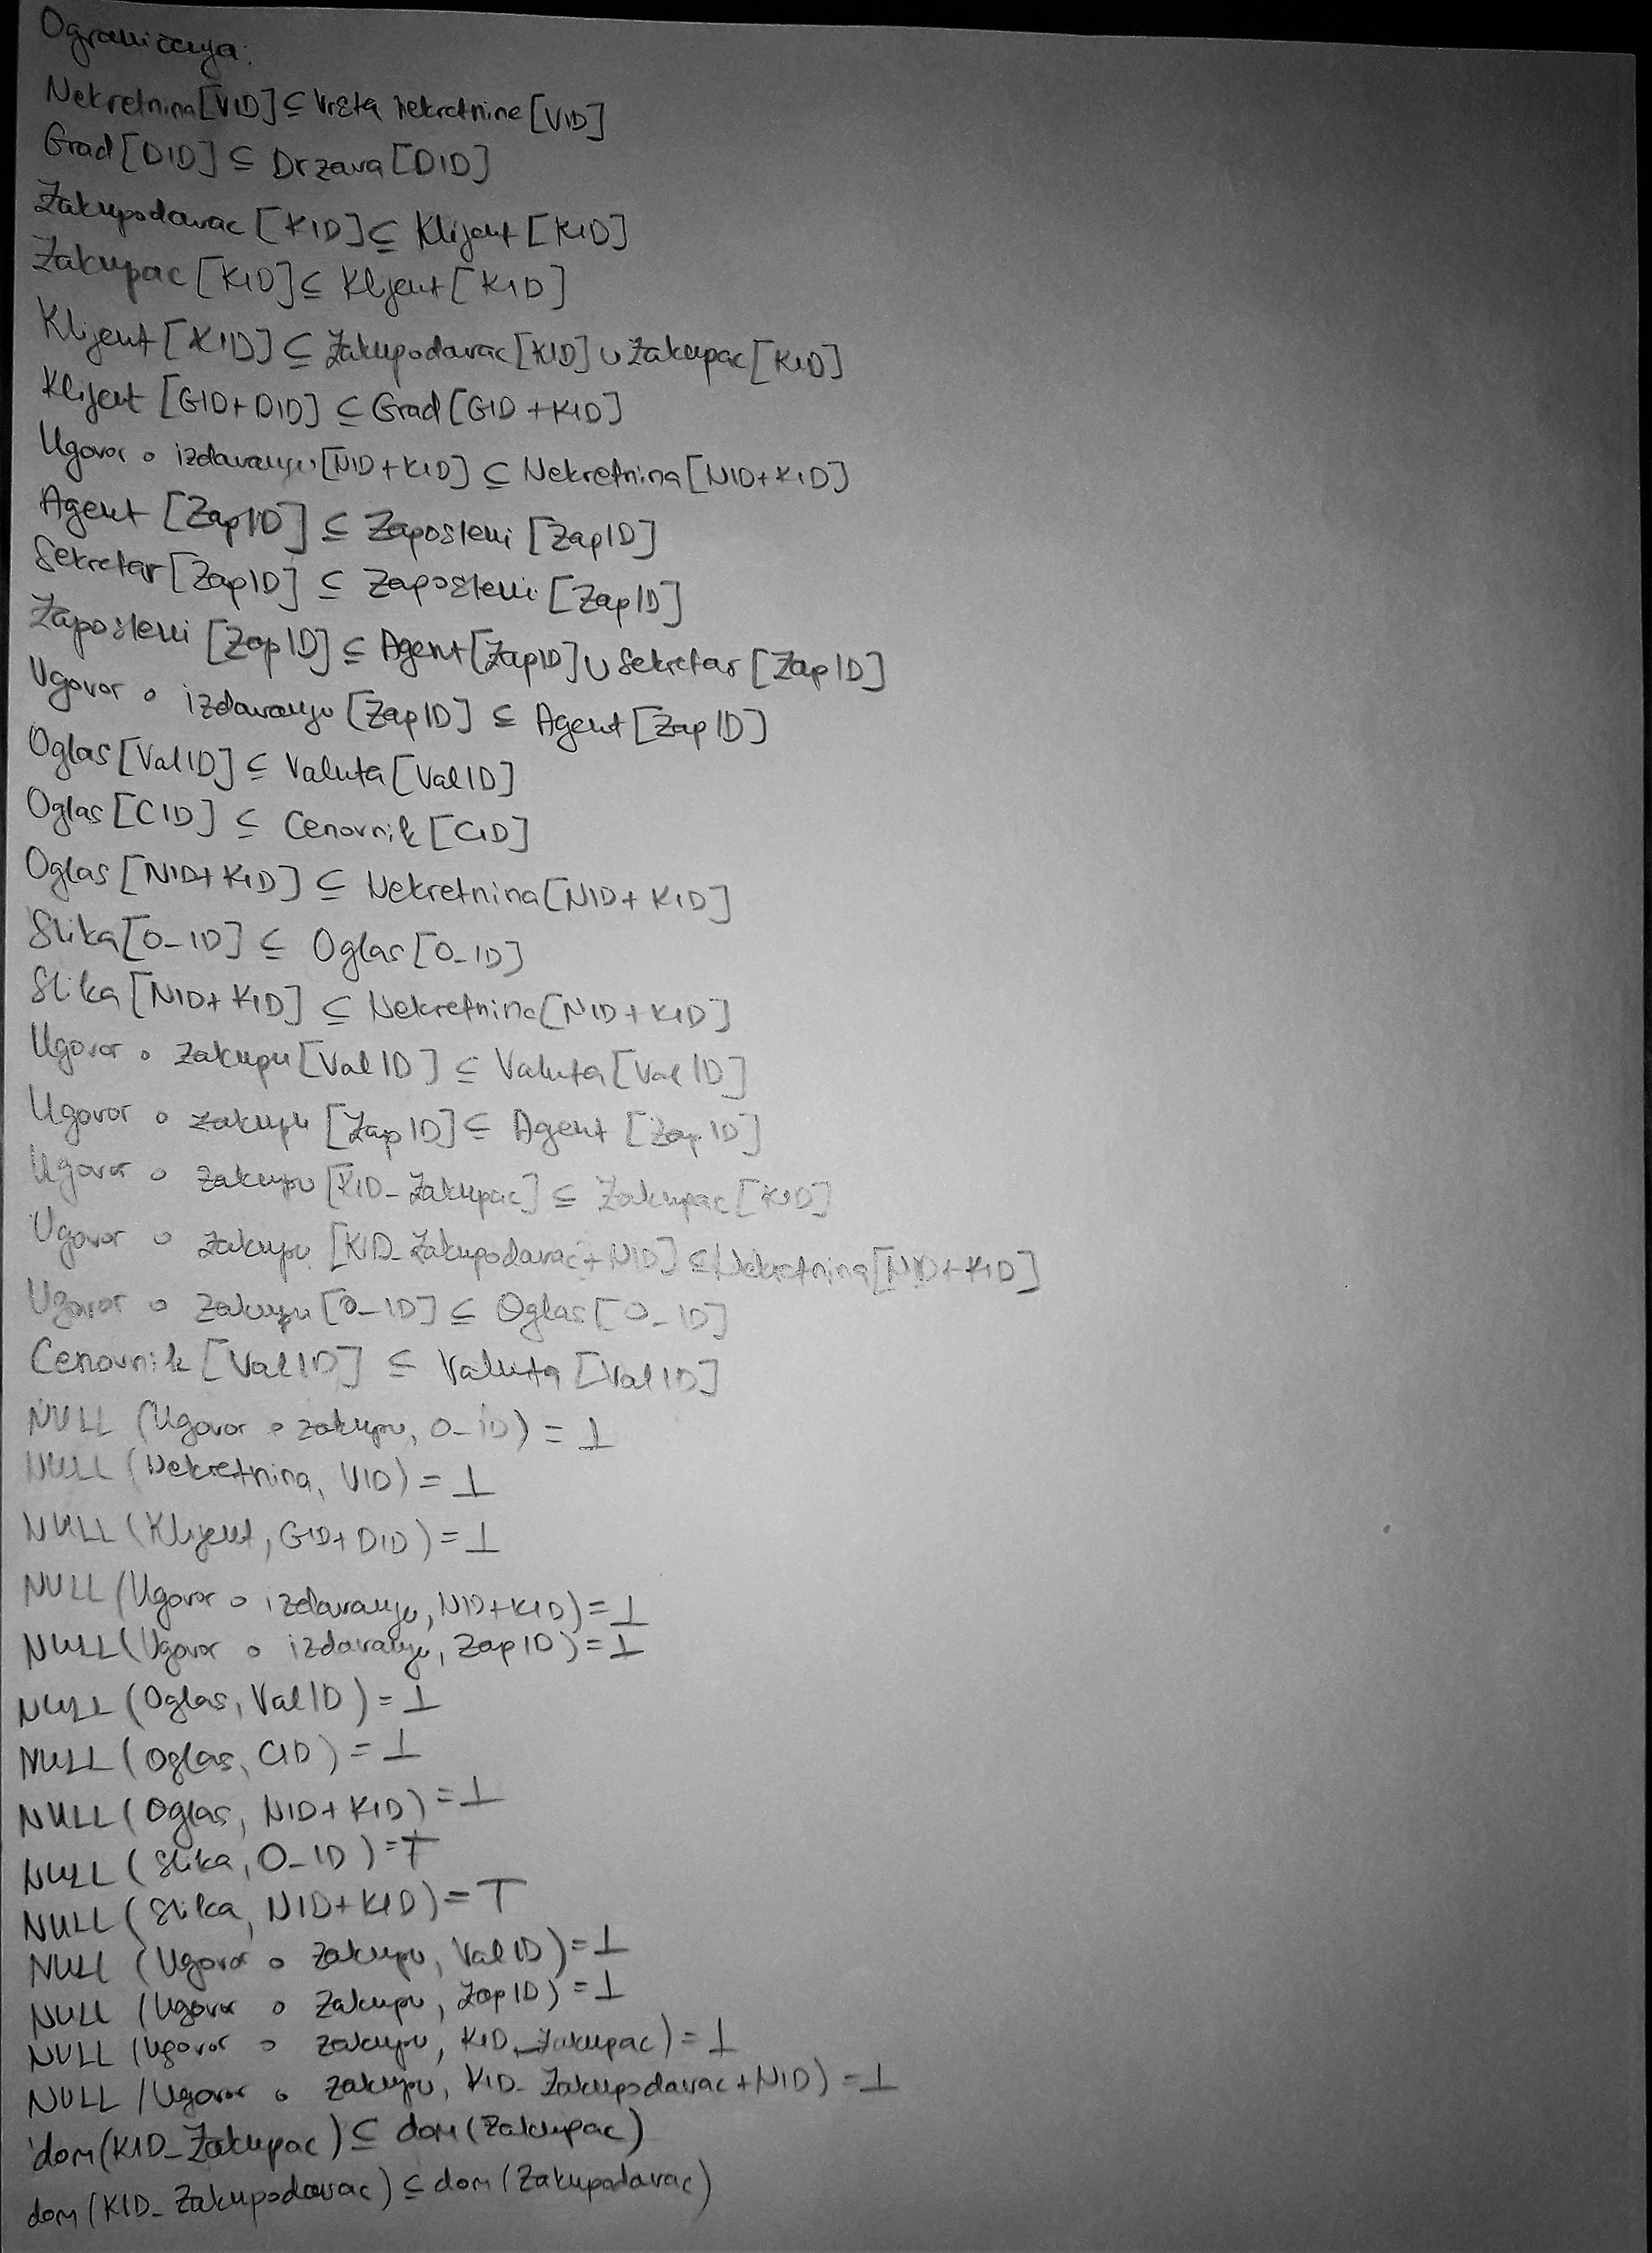 Ograničenja:
Nekretnina[VID] ⊆ Vrsta nekretnine [VID]
Grad [DID] ⊆ Drzava [DID]
Zakupodavac [KID] ⊆ Klijent [KID]
Zakupac [KID] ⊆ Klijent [KID]
Klijent [KID] ⊆ Zakupodavac [KID] ∪ Zakupac [KID]
Klijent [GID+DID] ⊆ Grad [GID+KID]
Ugovor o izdavanju [NID+KID] ⊆ Nekretnina [NID+KID]
Agent [ZapID] ⊆ Zaposleni [ZapID]
Sekretar [ZapID] ⊆ Zaposleni [ZapID]
Zaposleni [ZapID] ⊆ Agent [ZapID] ∪ Sekretar [ZapID]
Ugovor o izdavanju [ZapID] ⊆ Agent [ZapID]
Oglas [ValID] ⊆ Valuta [ValID]
Oglas [CID] ⊆ Cenovnik [CID]
Oglas [NID+KID] ⊆ Nekretnina [NID+KID]
Slika [O_ID] ⊆ Oglas [O_ID]
Slika [NID+KID] ⊆ Nekretnina [NID+KID]
Ugovor o zakupu [ValID] ⊆ Valuta [ValID]
Ugovor o zakupu [ZapID] ⊆ Agent [ZapID]
Ugovor o zakupu [KID_Zakupac] ⊆ Zakupac [KID]
Ugovor o zakupu [KID_Zakupodavac+NID] ⊆ Nekretnina [NID+KID]
Ugovor o zakupu [O_ID] ⊆ Oglas [O_ID]
Cenovnik [ValID] ⊆ Valuta [ValID]
NULL (Ugovor o zakupu, O_ID) = ⊥
NULL (Nekretnina, VID) = ⊥
NULL (Klijent, GID+DID) = ⊥
NULL (Ugovor o izdavanju, NID+KID) = ⊥
NULL (Ugovor o izdavanju, ZapID) = ⊥
NULL (Oglas, ValID) = ⊥
NULL (Oglas, CID) = ⊥
NULL (Oglas, NID+KID) = ⊥
NULL (Slika, O_ID) = T
NULL (Slika, NID+KID) = T
NULL (Ugovor o zakupu, ValID) = ⊥
NULL (Ugovor o zakupu, ZapID) = ⊥
NULL (Ugovor o zakupu, KID_Zakupac) = ⊥
NULL (Ugovor o zakupu, KID_Zakupodavac+NID) = ⊥
dom (KID_Zakupac) ⊆ dom (Zakupac)
dom (KID_Zakupodavac) ⊆ dom (Zakupodavac)